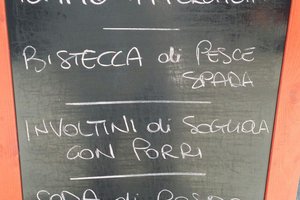 BISTECCA di PESCE
SPADA
INVOLTINI di SOGLIOLA
CON PORRI
CODA di ROSPO